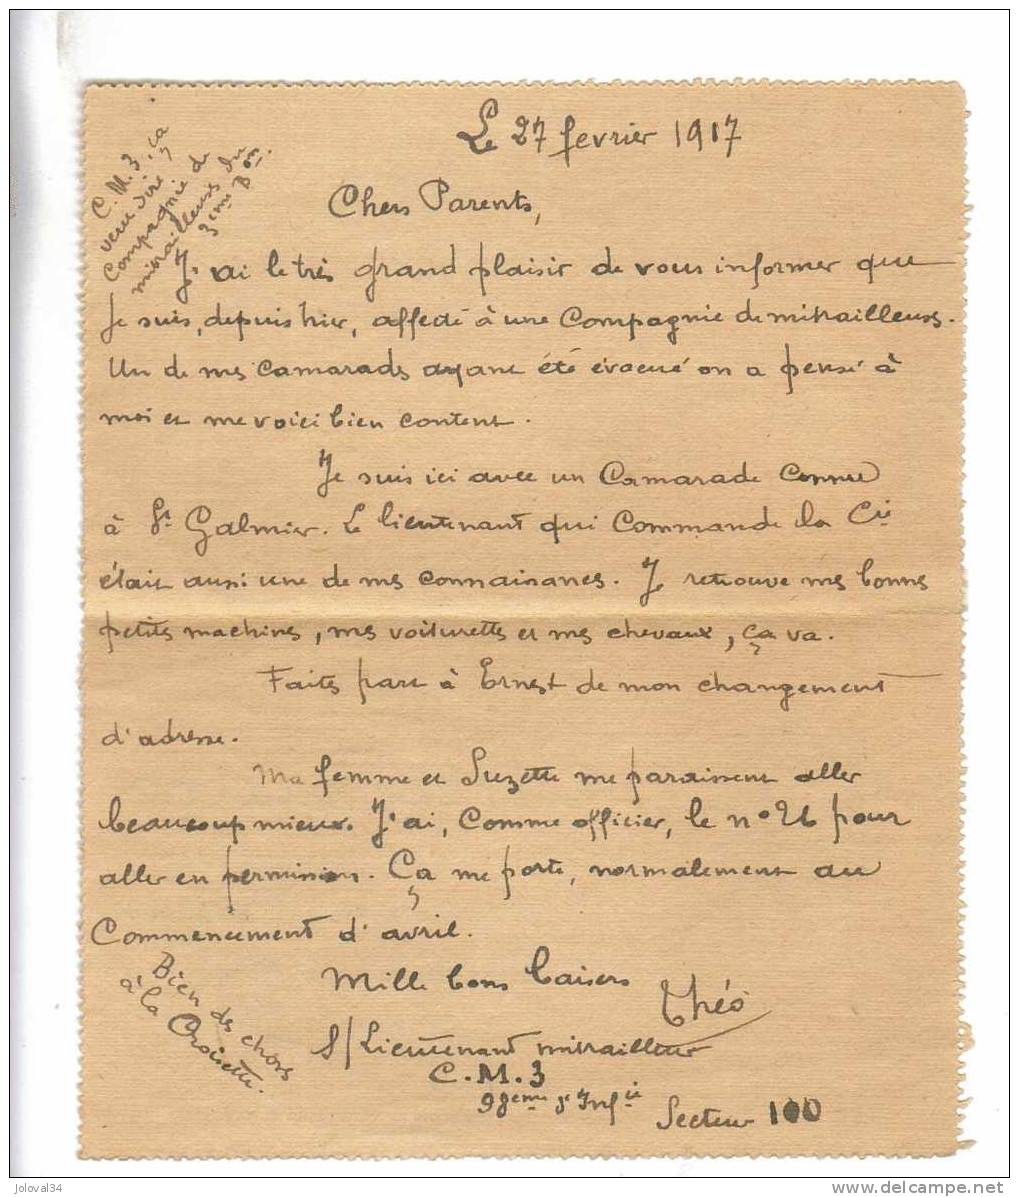 Le 27 fevrier 1917
C.M.3, ça
veut dire
Compagnie de
mitrailleuses du
3eme Bon.
Chers Parents,
J'ai le très grand plaisir de vous informer que
je suis, depuis hier, affecté à une Compagnie de mitrailleuses.
Un de mes camarades ayant été évacué on a pensé à
moi et me voici bien content.
Je suis ici avec un Camarade connu
à St Galmier. Le lieutenant qui commande la Cie
était aussi une de mes connaissances. Je retrouve mes bonnes
petites machines, mes voiturettes et mes chevaux, ça va.
Faites part à Ernest de mon changement
d'adresse.
Ma femme et Suzette me paraissent aller
beaucoup mieux. J'ai, comme officier, le n° 26 pour
aller en permission. Ça me porte, normalement au
Commencement d'avril.
Mille bons baisers
Théo
Bien des choses
à la Croisette.
S/Lieutenant mitrailleur
C.M.3
98eme d'Infie
Secteur 100
joloval34
delcampe.net